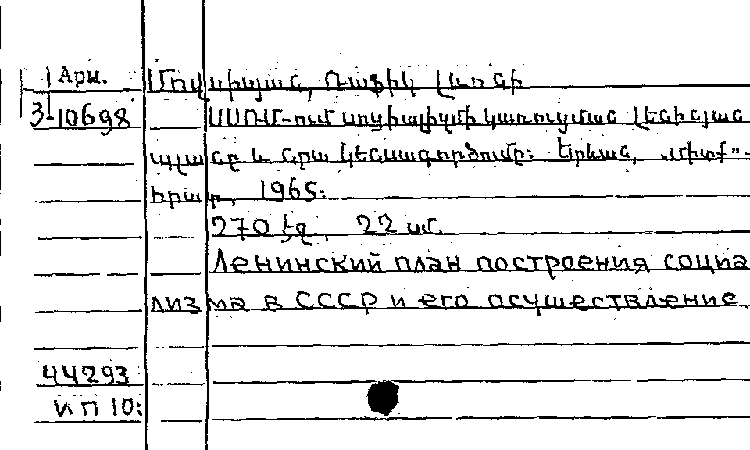 Арм. Մովսիսյան, Ռաֆիկ Լևոնի
3-10698 ՍՍՌՄ-ում սոցիալիզմի կառուցման լենինյան
պլանը և նրա կենսագործումը: Երևան, „միտք"-
հրատ., 1965:
270 էջ, 22 սմ.
Ленинский план построения социа
лизма в СССР и его осуществление
44293
И П 10: